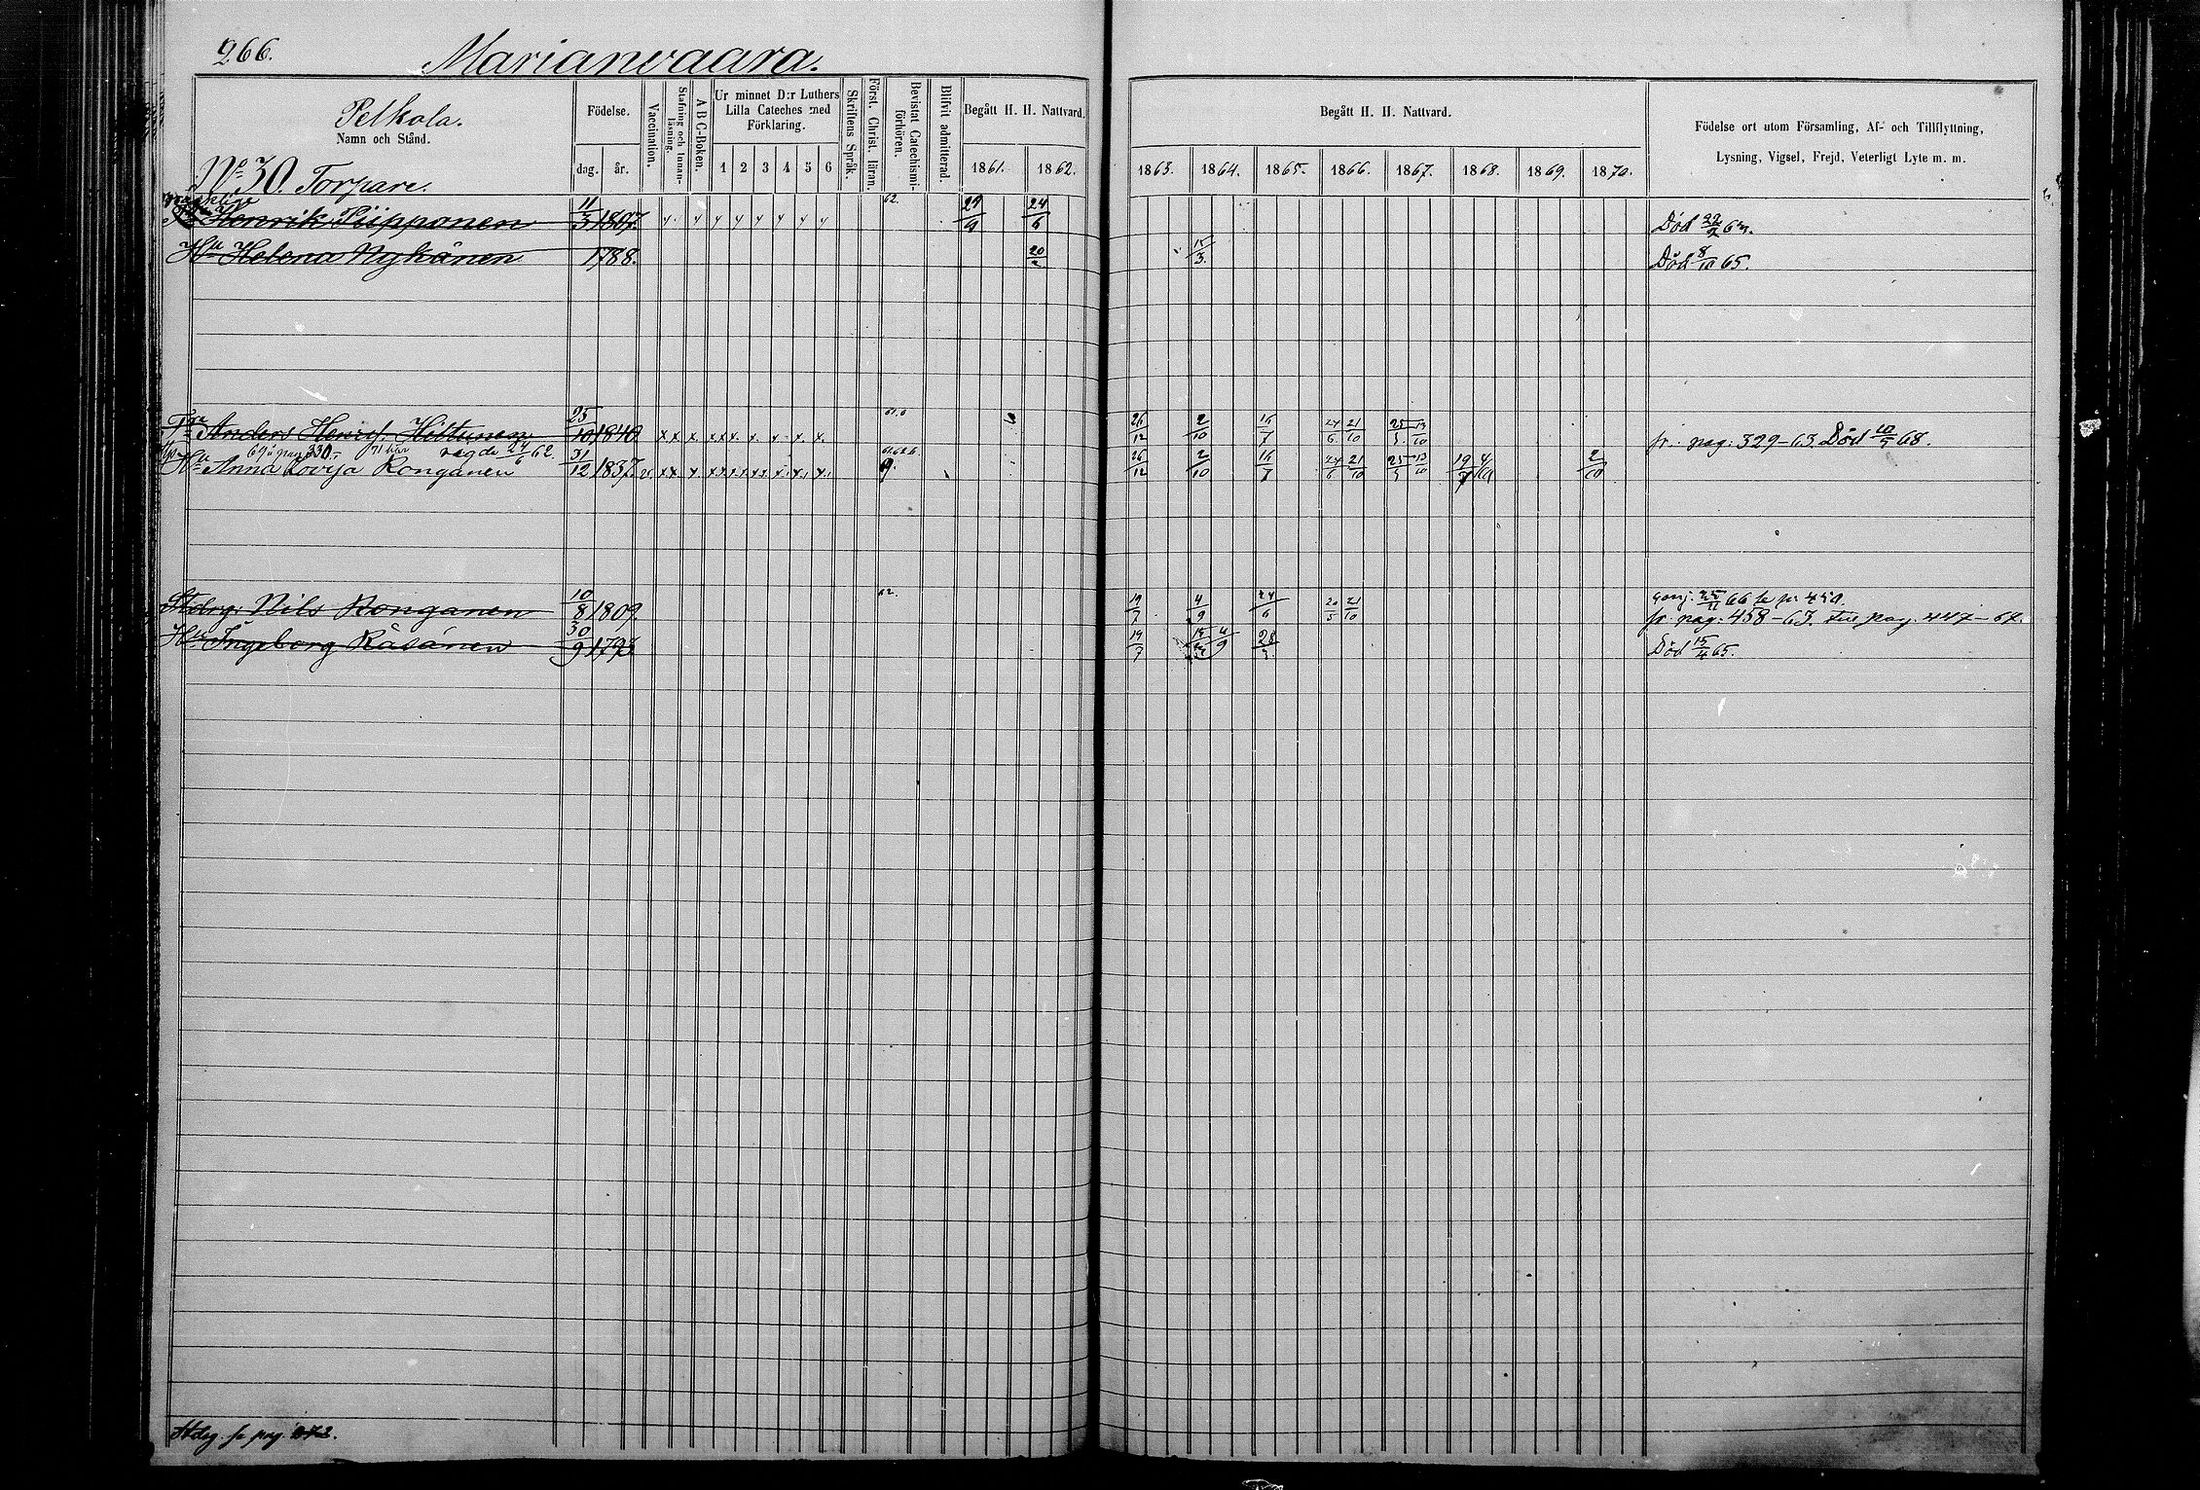 266.
Marianvaara.
Pelkola.
Namn och Stånd.
Födelse.
dag. år.
Vaccination.
Stafning och Innan-läsning.
A B C-Boken.
Ur minnet D:r Luthers Lilla Cateches med Förklaring.
1 2 3 4 5 6
Skriftens Språk.
Först. Christ. läran.
Bevistat Catechismi-förhören.
Blifvit admitterad.
Begått H. H. Nattvard.
1861. 1862.
Begått H. H. Nattvard.
1863. 1864. 1865. 1866. 1867. 1868. 1869. 1870.
Födelse ort utom Församling, Af- och Tillflyttning,
Lysning, Vigsel, Frejd, Veterligt Lyte m. m.
No 30. Torpare.
Henrik Piipponen 11/3 1807. 62. 24/6 Död 22/2 63.
Hu Helena Nykänen 1788. 15/3 Död 8/10 65.
Anders Henrs. Hiltunen 25/10 1840. 26/12 2/10 16/7 24/6 21/10 25/5 13/10 fr. pag: 329-63. Död 10/5 68.
24/6 62.
Hu Anna Lovisa Ronganen 31/12 1837. 26/12 2/10 16/7 24/6 21/10 25/5 13/10 19/7 2/10
Nils Ronganen 10/8 1809. 62. 19/7 4/9 24/6 20/5 21/10
fr. pag: 458-63. pag. 447-67.
Hu Ingeborg Räsänen 30/9 1793. 19/7 28/3 Död 15/4 65.
Stdrg. se pag.